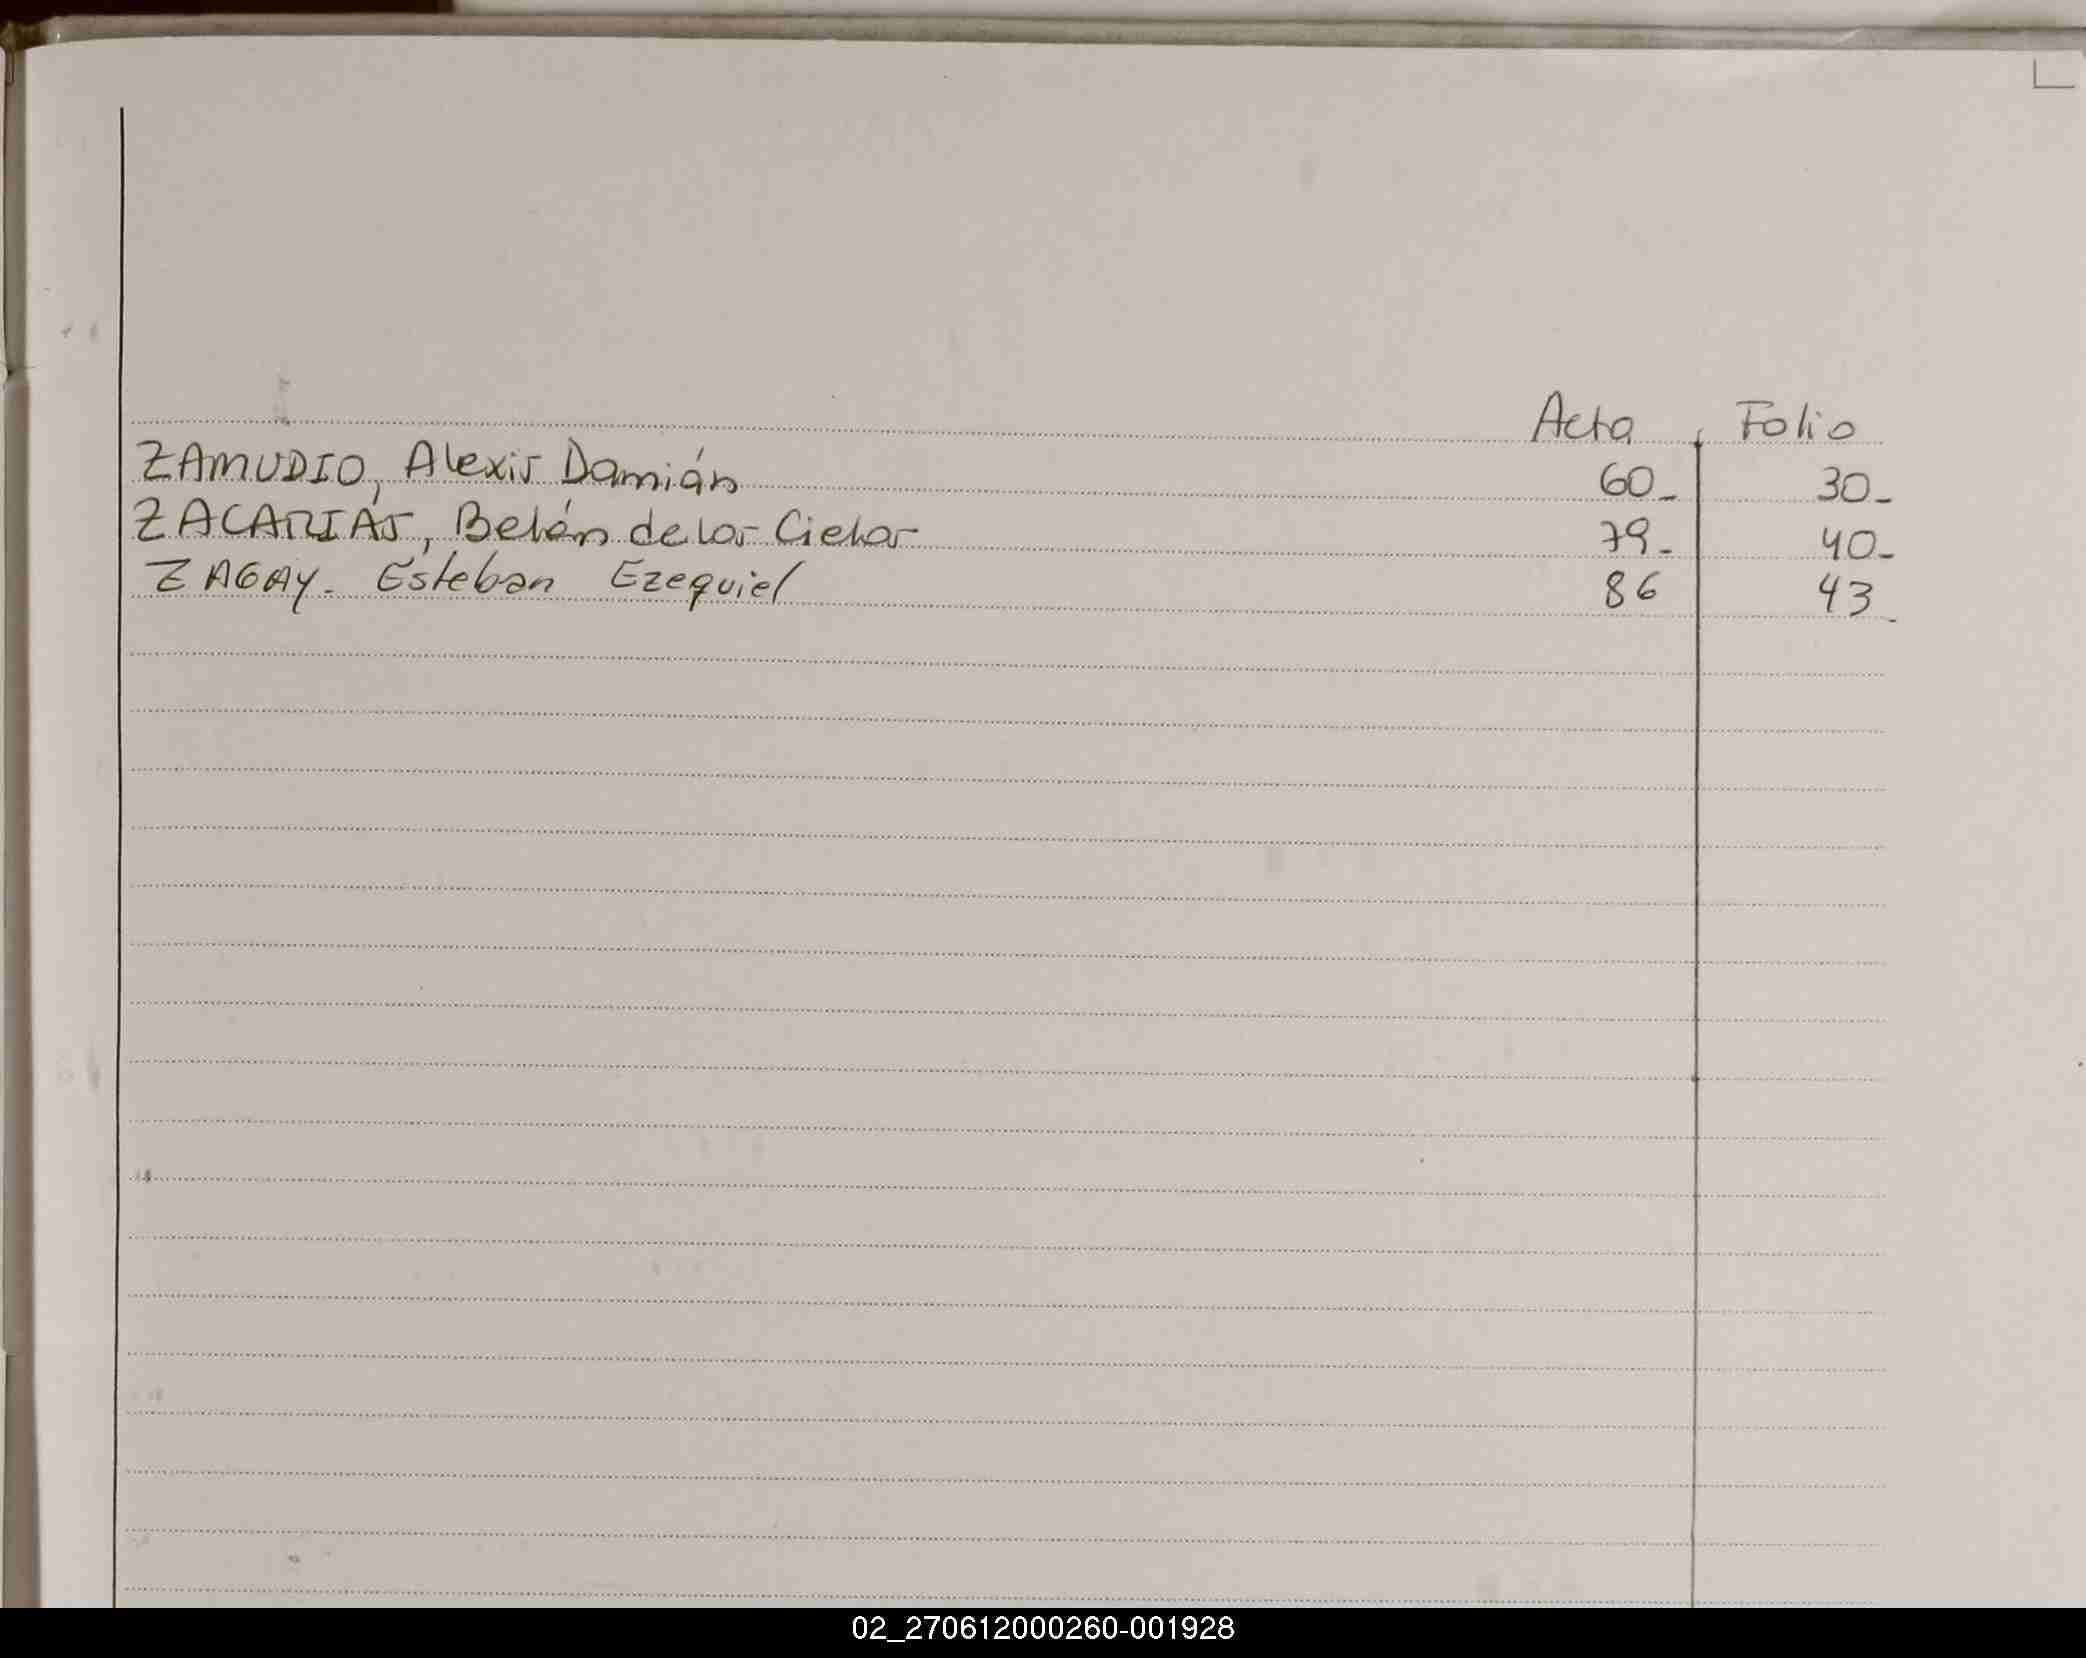 Acta Folio
ZAMUDIO, Alexis Damián 60- 30-
ZACARIAS, Belén de los Cielos 79- 40-
ZAGAY- Esteban Ezequiel 86 43-
02_270612000260-001928